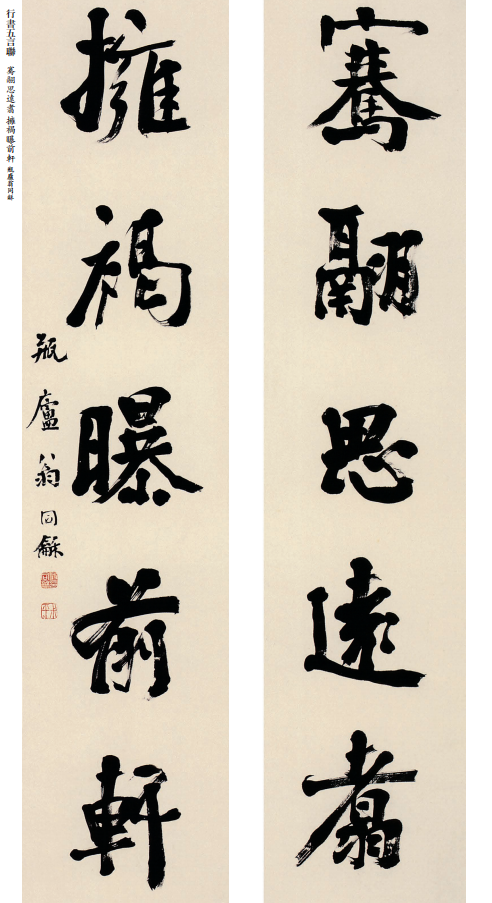 騫翮思遠翥
擁褐曝前軒
瓶廬翁同龢
行書五言聯 騫翮思遠翥 擁褐曝前軒 瓶廬翁同龢